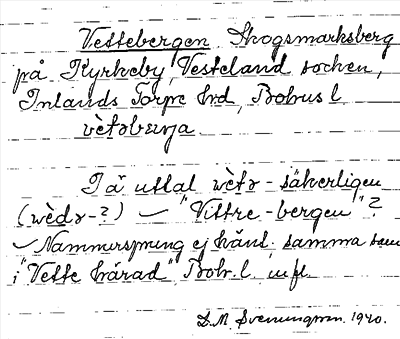 Vettebergen Skogsmarksberg
på Kyrkeby, Västerland socken,
Inlands Torpe hrd, Bohus l.
vètəbærja
I ä uttal wètə- säkerligen
(wèdə-?) "Vittre-bergen"?
Namnursprung ej känt. samma som
i "Vette härad" Boh. l. m fl.
D. M. Svenungsson. 1940.